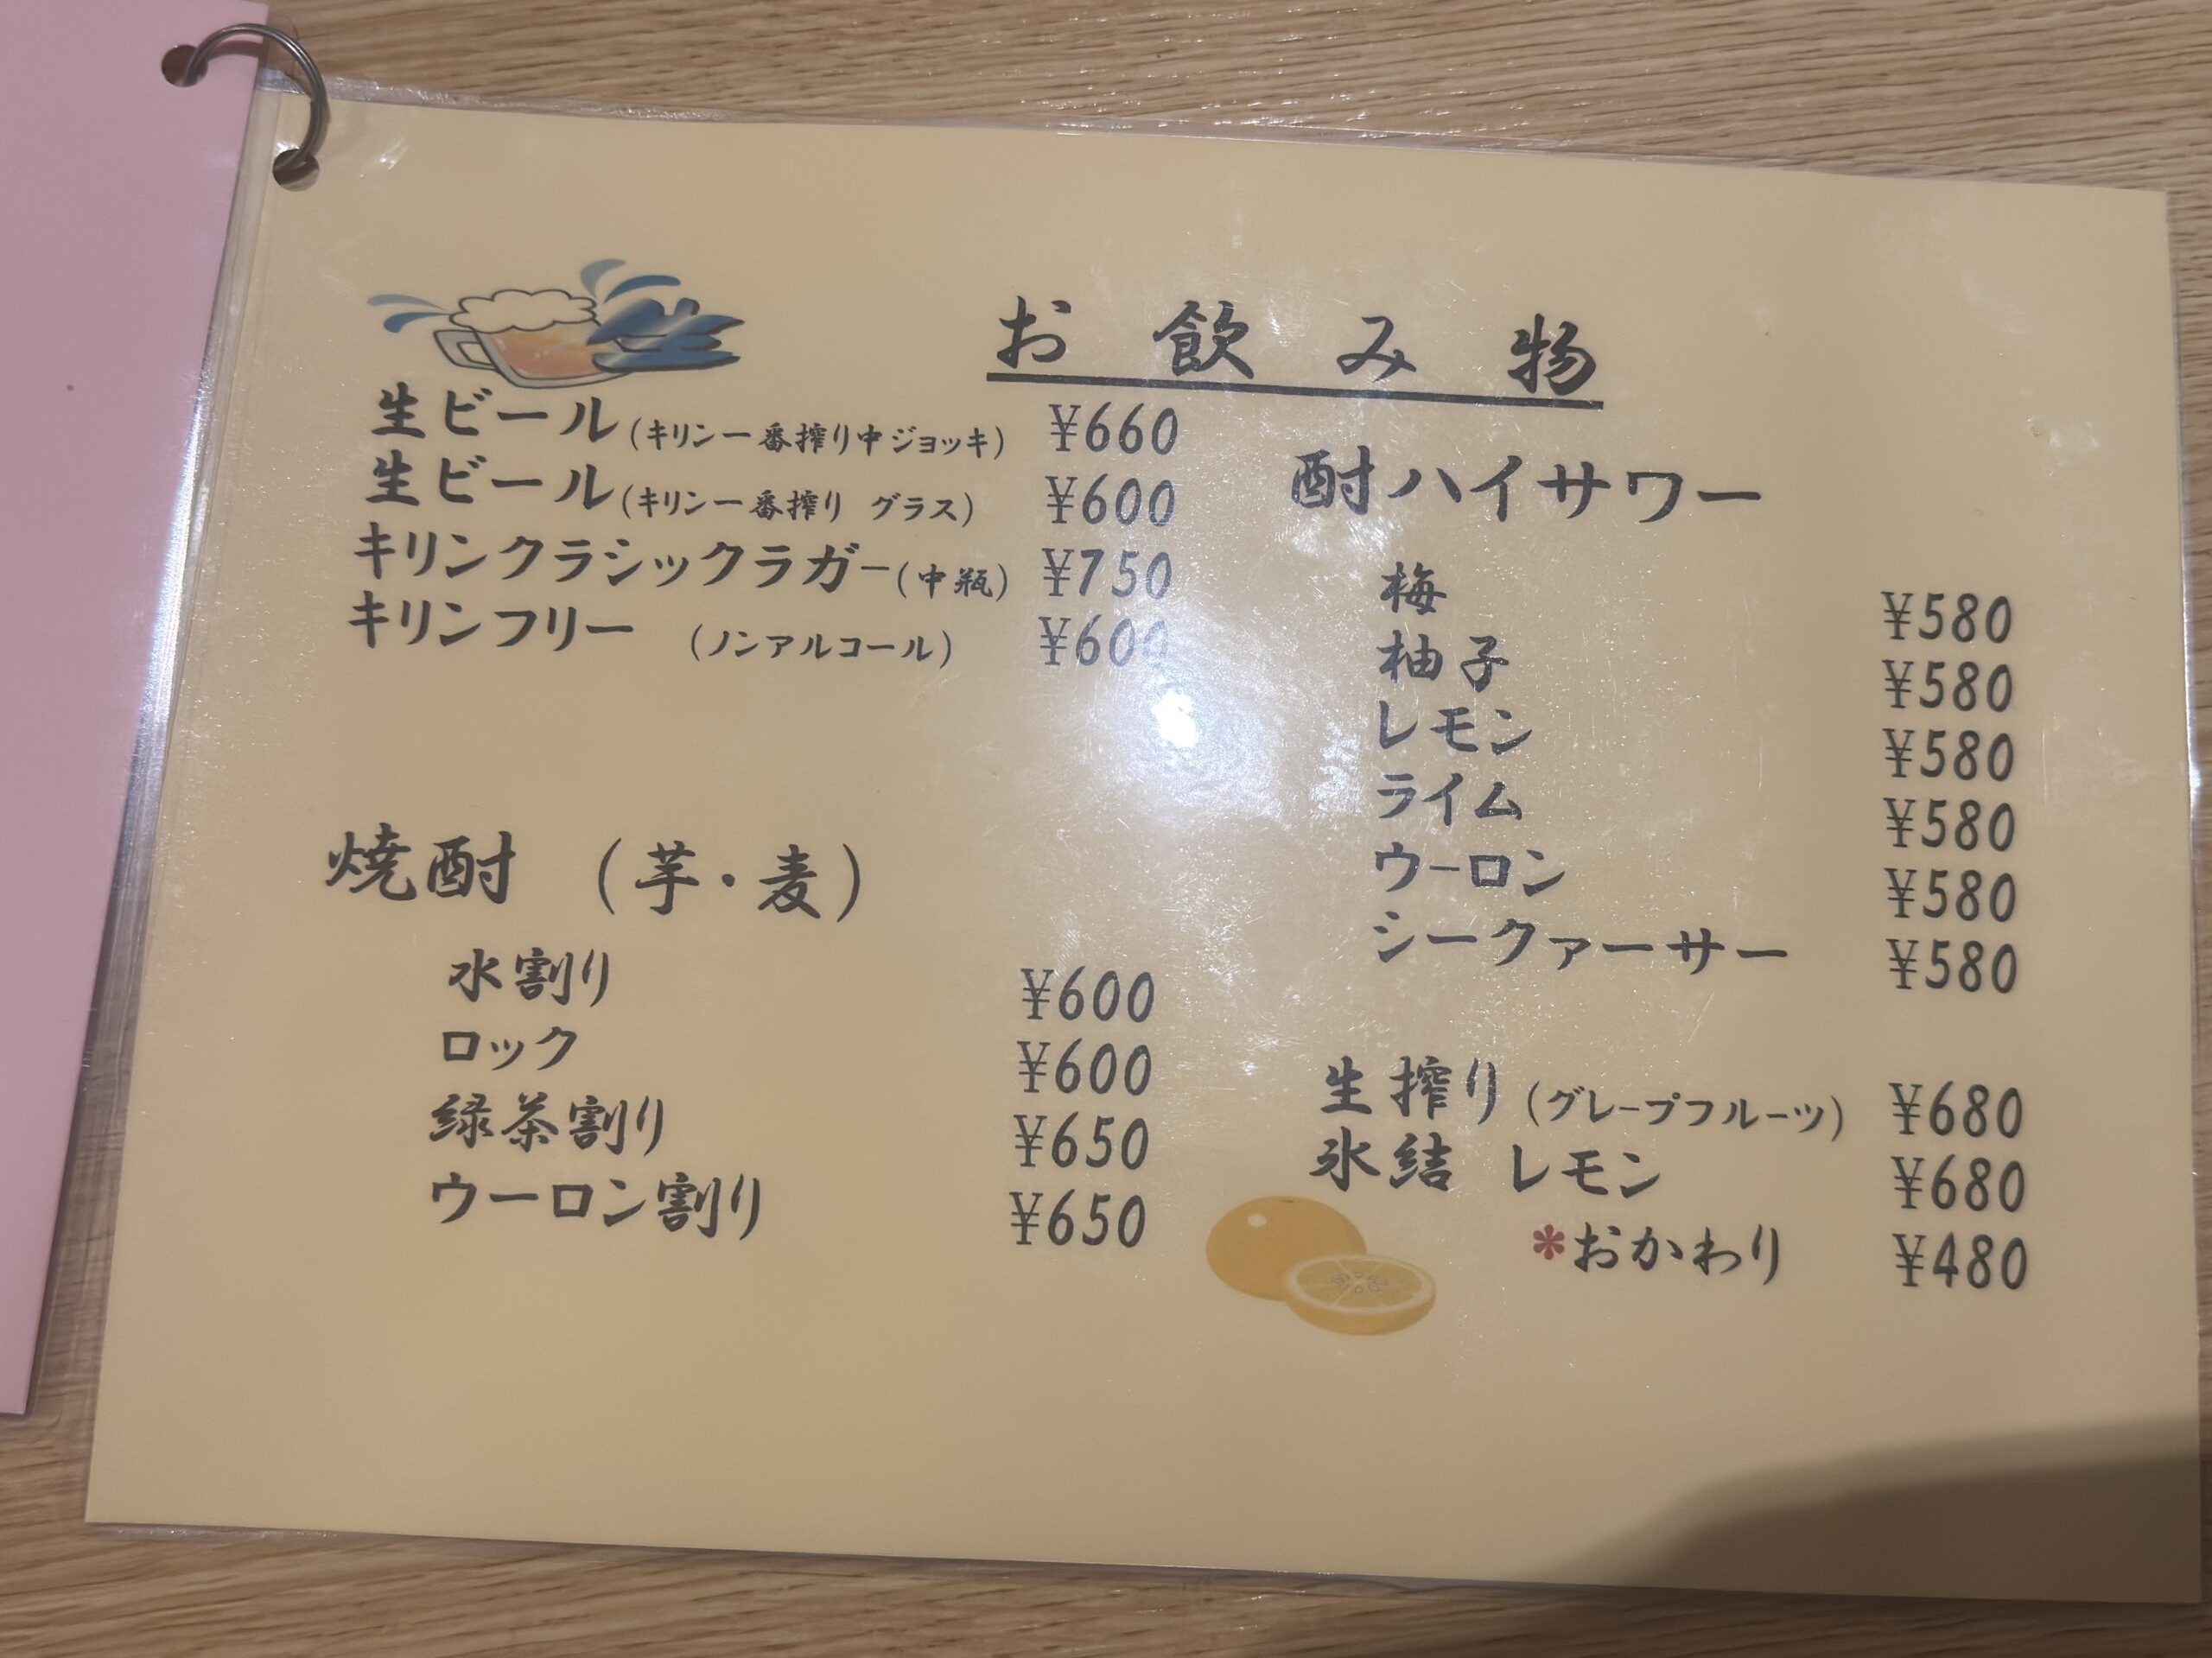 お飲み物
生
生ビール(キリン一番搾り中ジョッキ) ¥660
生ビール(キリン一番搾り グラス) ¥600
キリンクラシックラガー(中瓶) ¥750
キリンフリー (ノンアルコール) ¥600
焼酎 (芋・麦)
水割り ¥600
ロック ¥600
緑茶割り ¥650
ウーロン割り ¥650
酎ハイサワー
梅 ¥580
柚子 ¥580
レモン ¥580
ライム ¥580
ウーロン ¥580
シークァーサー ¥580
生搾り (グレープフルーツ) ¥680
氷結 レモン ¥680
*おかわり ¥480